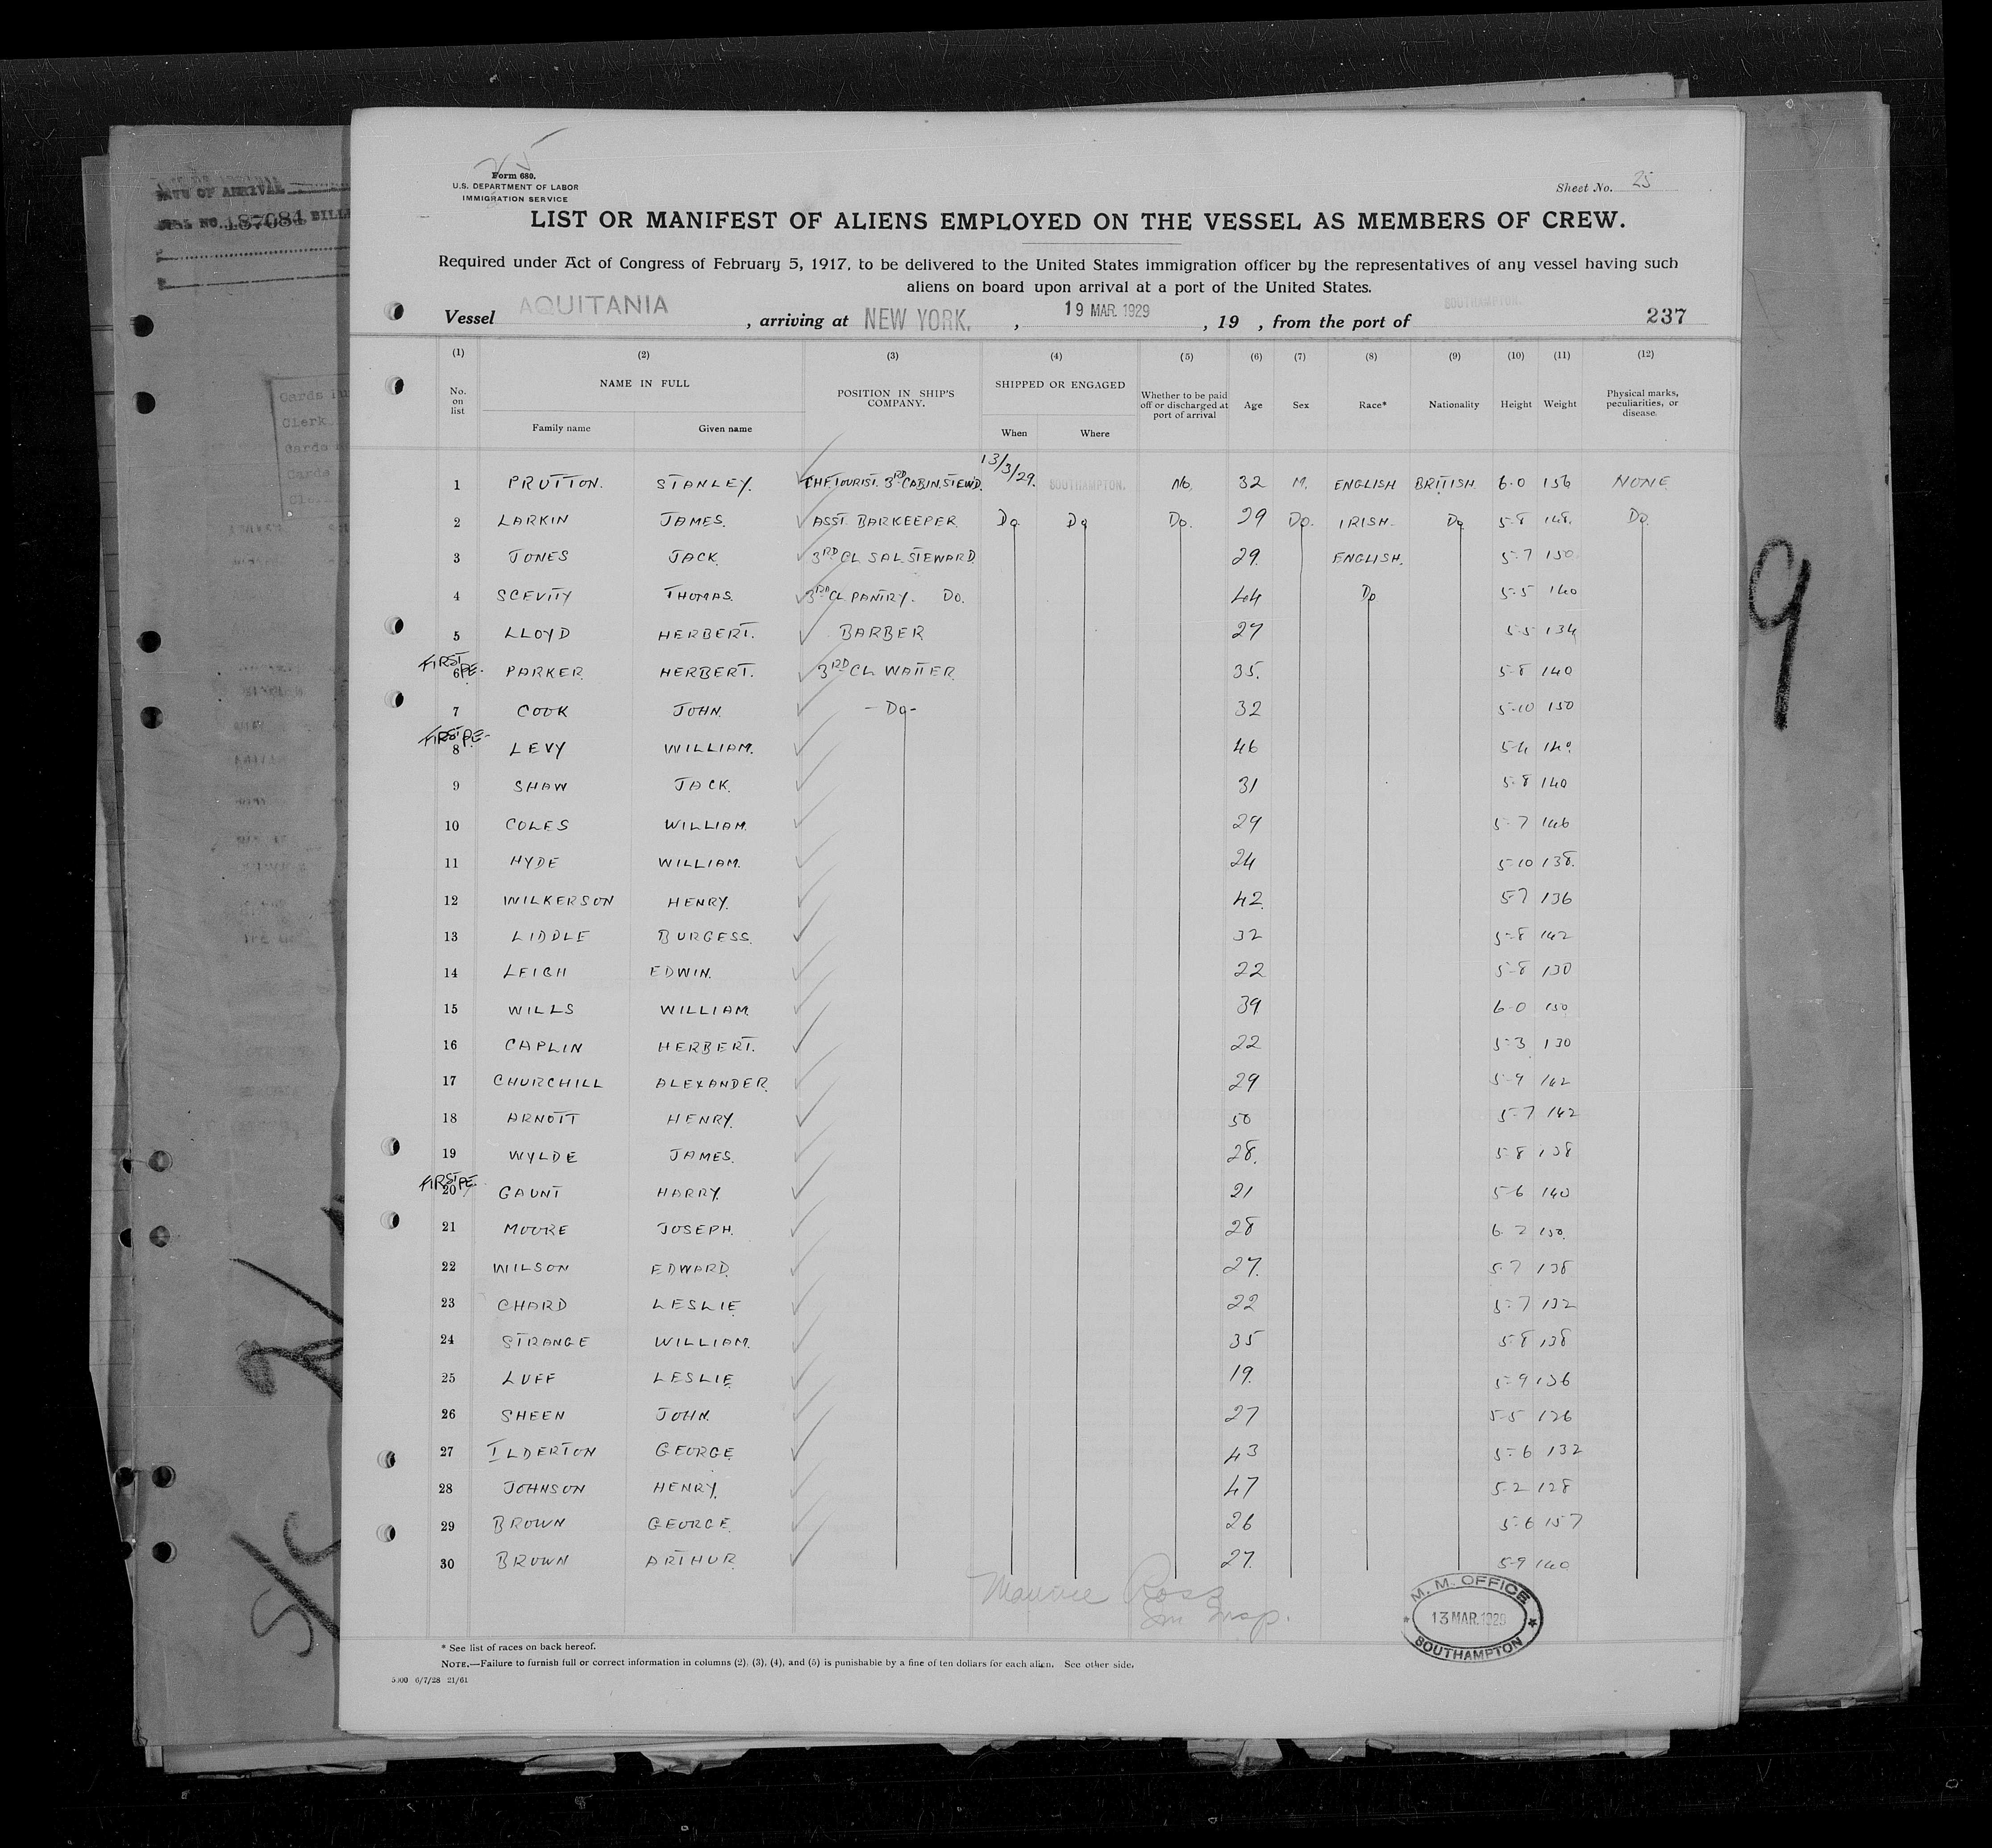 DATE OF ARRIVAL
187084
25
Form 680.
U.S. DEPARTMENT OF LABOR
IMMIGRATION SERVICE
Sheet No. 25
LIST OR MANIFEST OF ALIENS EMPLOYED ON THE VESSEL AS MEMBERS OF CREW.
Required under Act of Congress of February 5, 1917, to be delivered to the United States immigration officer by the representatives of any vessel having such
aliens on board upon arrival at a port of the United States.
Vessel AQUITANIA, arriving at NEW YORK., 19 MAR. 1929, 19 , from the port of SOUTHAMPTON. 237
(1) (2) (3) (4) (5) (6) (7) (8) (9) (10) (11) (12)
No. on list NAME IN FULL Family name Given name POSITION IN SHIP'S COMPANY. SHIPPED OR ENGAGED When Where Whether to be paid off or discharged at port of arrival Age Sex Race* Nationality Height Weight Physical marks, peculiarities, or disease.
1 PRUTTON. STANLEY. CHF. TOURIST. 3RD CABIN. STEWD. 13/3/29. SOUTHAMPTON. No. 32 M. ENGLISH BRITISH 6.0 156 NONE
2 LARKIN JAMES. ASST. BARKEEPER. Do. Do Do. 29 Do. IRISH. Do 5-8 148. Do.
3 JONES JACK. 3RD CL SAL. STEWARD. 29. ENGLISH. 5-7 150
4 SCEVITY THOMAS. 3RD CL PANTRY. Do. 44 Do 5-5 140
5 LLOYD HERBERT. BARBER 27 5-5 134
FIRST PE.
6 PARKER HERBERT. 3RD CL WAITER. 35. 5-8 140
7 COOK JOHN. -Do- 32 5-10 150
FIRST PE-
8 LEVY WILLIAM. 46 5-4 140
9 SHAW JACK. 31 5-8 140
10 COLES WILLIAM. 29 5-7 146
11 HYDE WILLIAM. 24 5-10 138.
12 WILKERSON HENRY. 42. 5-7 136
13 LIDDLE BURGESS. 32 5-8 142
14 LEIGH EDWIN. 22 5-8 130
15 WILLS WILLIAM 39 6-0 150
16 CAPLIN HERBERT. 22 5-3 130
17 CHURCHILL ALEXANDER. 29 5-9 142
18 ARNOTT HENRY. 50 5-7 142
19 WYLDE JAMES. 28. 5-8 138
FIRST PE.
20 GAUNT HARRY. 21 5-6 140
21 MOORE JOSEPH. 28 6.2 150.
22 WILSON EDWARD. 27. 5-7 138
23 CHARD LESLIE 22 5-7 132
24 STRANGE WILLIAM. 35 5-8 138
25 LUFF LESLIE 19. 5-9 136
26 SHEEN JOHN. 27 5-5 126
27 ILDERTON GEORGE 43 5-6 132
28 JOHNSON HENRY. 47 5-2 128
29 BROWN GEORGE. 26 5-6 157
30 BROWN ARTHUR 27. 5-9 140
Maurice Ross
Im Insp.
M. M. OFFICE
13 MAR. 1929
SOUTHAMPTON
* See list of races on back hereof.
NOTE.—Failure to furnish full or correct information in columns (2), (3), (4), and (5) is punishable by a fine of ten dollars for each alien. See other side.
5000 6/7/28 21/61
9